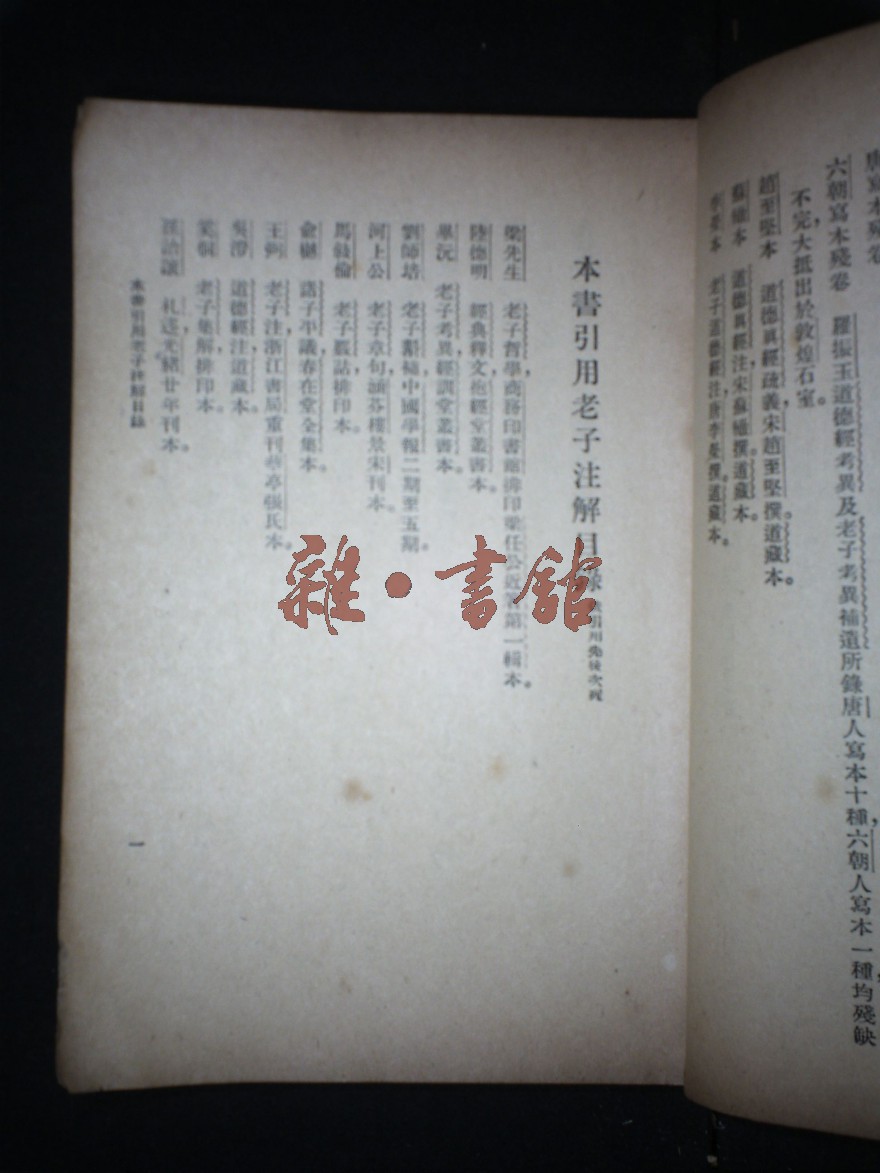 唐寫本殘卷
六朝寫本殘卷　羅振玉道德經考異及老子考異補遺所錄唐人寫本十種，六朝人寫本一種，均殘缺
不完，大抵出於敦煌石室。
趙至堅本　道德眞經疏義，宋趙至堅撰。道藏本。
蘇轍本　道德眞經注，宋蘇轍撰。道藏本。
李榮本　老子道德經注，唐李榮撰。道藏本。
本書引用老子注解目錄 引用先後次列
梁先生　老子哲學，商務印書館排印梁任公近著第一輯本。
陸德明　經典釋文，抱經堂叢書本。
畢沅　老子考異，經訓堂叢書本。
劉師培　老子斠補，中國學報二期至五期。
河上公　老子章句，涵芬樓景宋刊本。
馬敍倫　老子覈詁，排印本。
俞樾　諸子平議，春在堂全集本。
王弼　老子注，浙江書局重刊華亭張氏本。
吳澄　道德經注，道藏本。
奚侗　老子集解，排印本。
孫詒讓　札迻，光緒廿年刊本。
本書引用老子注解目錄
一
雜·書館